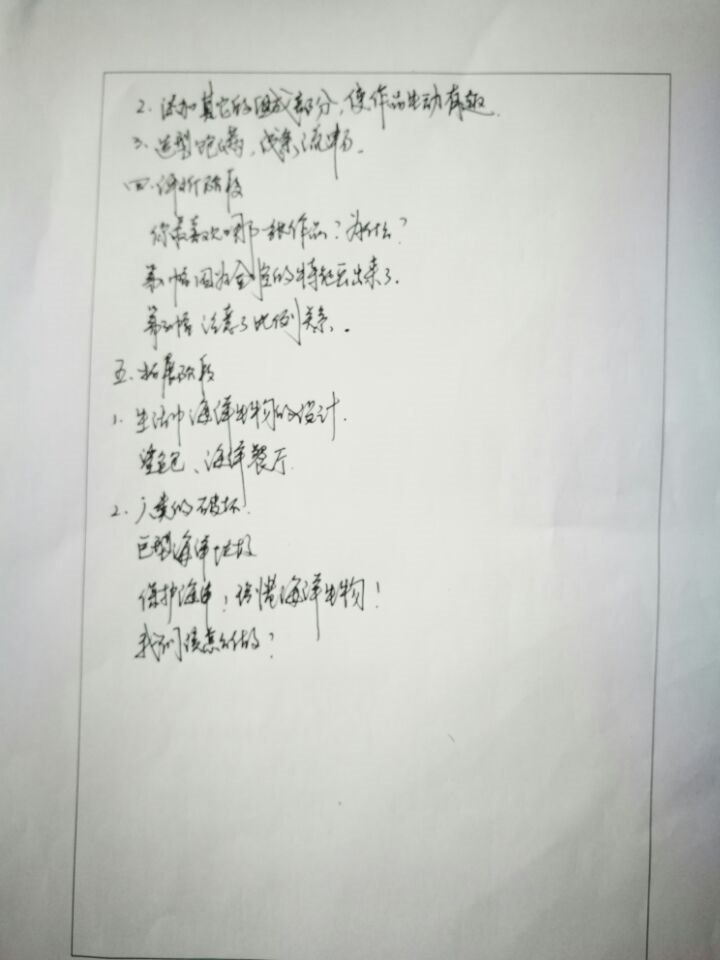 2. 添加其它的组成部分，使作品生动有趣.
3. 造型饱满，线条流畅.
四. 评析阶段
你最喜欢哪一张作品？为什么？
第一幅因为全 的特 画出来了.
第二幅 注意了比例关系.
五. 拓展阶段
1. 生活中海洋生物的设计.
、海洋餐厅
2. 人类的破坏.
巨型海洋垃圾
保护海洋！珍惜海洋生物！
我们该怎么做？